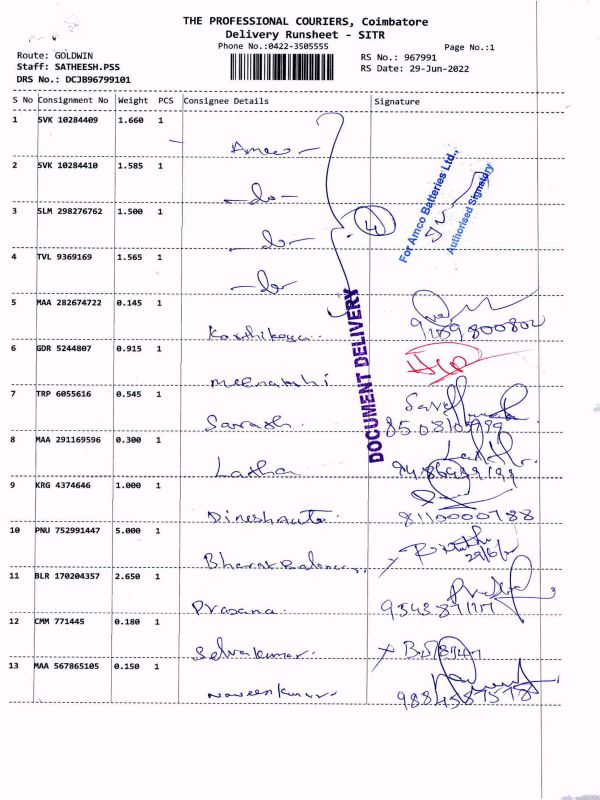 THE PROFESSIONAL COURIERS, Coimbatore
Delivery Runsheet - SITR
Phone No.:0422-3505555
Page No.:1
Route: GOLDWIN
Staff: SATHEESH.PSS
DRS No.: DCJB96799101
RS No.: 967991
RS Date: 29-Jun-2022
S No Consignment No Weight PCS Consignee Details Signature
1 SVK 10284409 1.660 1
Amco
2 SVK 10284410 1.585 1
-do-
3 SLM 298276762 1.500 1
-do-
4 TVL 9369169 1.565 1
-do-
4
For Amco Batteries Ltd.,
Authorised Signatory
DOCUMENT DELIVERY
5 MAA 282674722 0.145 1
Karthikeya
6 GDR 5244807 0.915 1
Meenakshi
7 TRP 6055616 0.545 1
Sarash
8 MAA 291169596 0.300 1
Latha
9 KRG 4374646 1.000 1
Dineshauto
10 PNU 752991447 5.000 1
Bharat Balances
11 BLR 170204357 2.650 1
Prasana
12 CMM 771445 0.180 1
Selvakumar
13 MAA 567865105 0.150 1
Naveenkumar